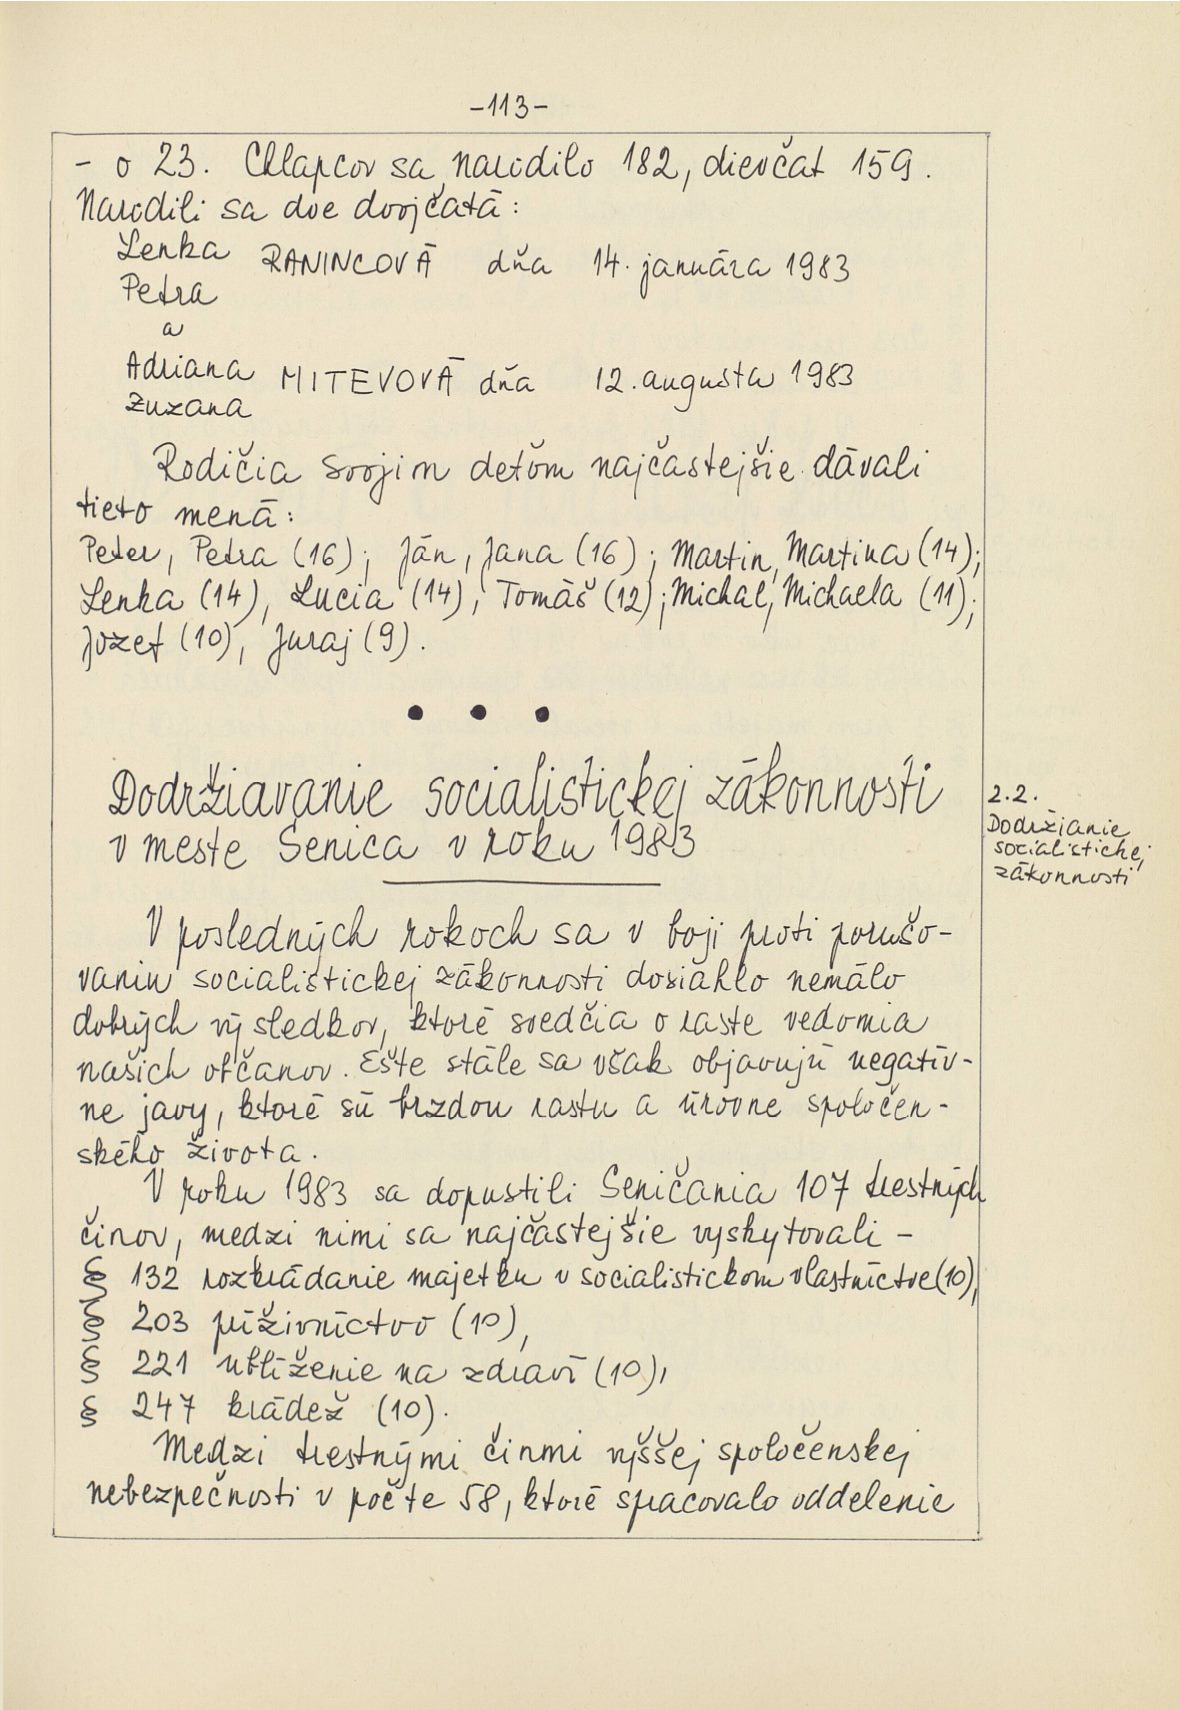 -113-
- o 23. Chlapcov sa narodilo 182, dievčat 159.
Narodili sa dve dvojčatá:
Lenka RANINCOVÁ dňa 14. januára 1983
Petra
a
Adriana MITEVOVÁ dňa 12. augusta 1983
Zuzana
Rodičia svojim deťom najčastejšie dávali
tieto mená:
Peter, Petra (16); Ján, Jana (16); Martin, Martina (14);
Lenka (14), Lucia (14), Tomáš (12); Michal, Michaela (11);
Jozef (10), Juraj (9).
• • •
Dodržiavanie socialistickej zákonnosti
v meste Senica v roku 1983
2.2.
Dodržianie
socialistickej
zákonnosti
V posledných rokoch sa v boji proti porušo-
vaniu socialistickej zákonnosti dosiahlo nemálo
dobrých výsledkov, ktoré svedčia o raste vedomia
našich občanov. Ešte stále sa však objavujú negatív-
ne javy, ktoré sú brzdou rastu a úrovne spoločen-
ského života.
V roku 1983 sa dopustili Seničania 107 trestných
činov, medzi nimi sa najčastejšie vyskytovali -
§ 132 rozkrádanie majetku v socialistickom vlastníctve (10),
§ 203 príživníctvo (10),
§ 221 ublíženie na zdraví (10),
§ 247 krádež (10).
Medzi trestnými činmi vyššej spoločenskej
nebezpečnosti v počte 58, ktoré spracovalo oddelenie